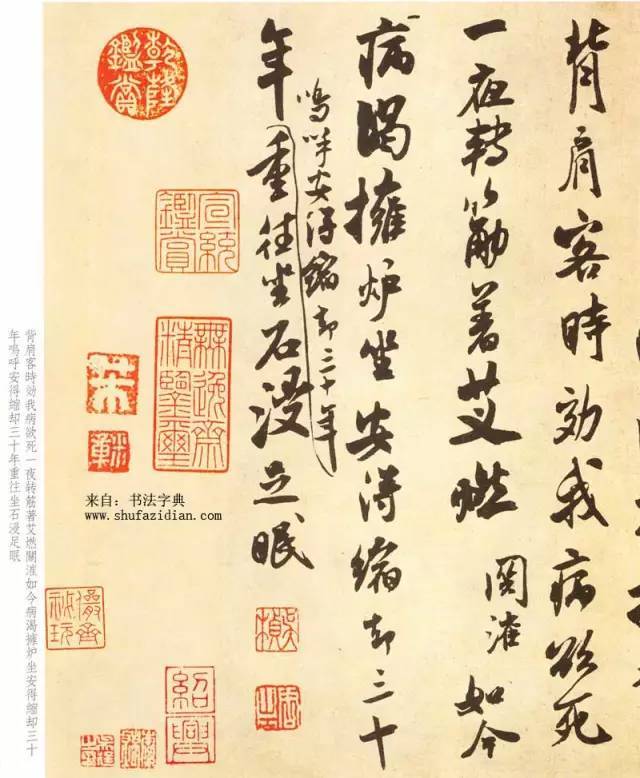 背肩客時効我病欲死
一夜轉筋著艾燃 如今
病渴擁炉坐安得縮却三十
嗚呼安得縮却三十年
年重往坐石浸足眠
乾隆鑑賞
宣統鑑賞
無逸齋精鑒璽
儼齋秘玩
紹興
来自：书法字典
www.shufazidian.com
背肩客時効我病欲死一夜转筋著艾燃關如今病渴擁炉坐安得縮却三十
年嗚呼安得縮却三十年重往坐石浸足眠